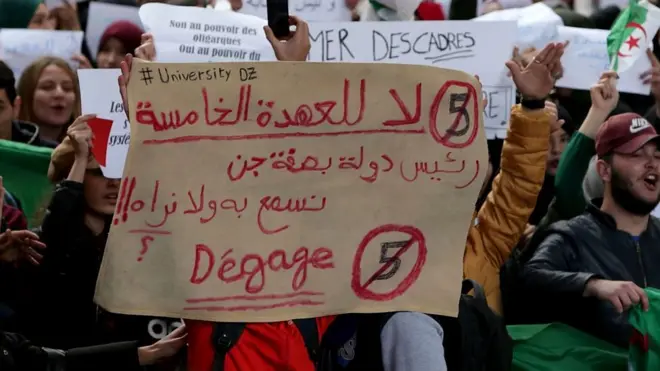 Non au pouvoir des
oligarques
Oui au pouvoir du
MER DES CADRES
# University DZ
لا للعهدة الخامسة 5
رئيس دولة بصفة جن
نسمع به ولا نراه!!
؟
Dégage 5